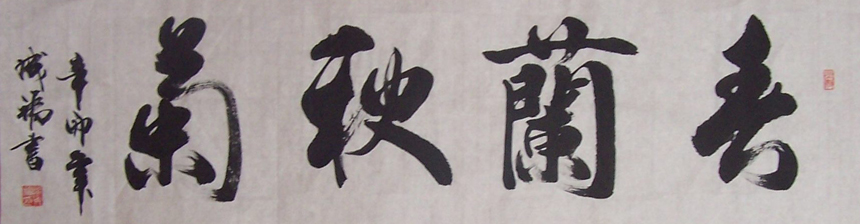 春蘭秋菊
辛卯年
城福書